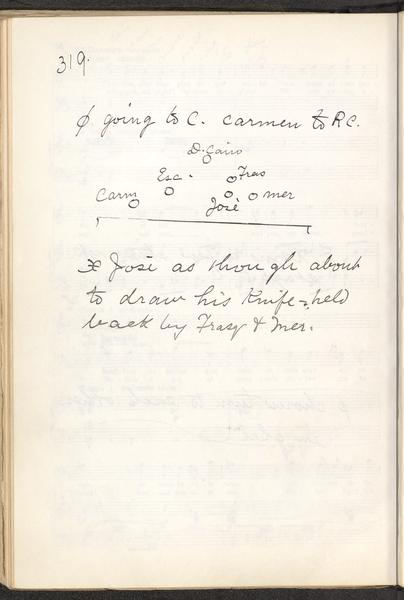 319.
φ going to C. Carmen to R C.
D. Cairo
Esc. Fras
Carm José mer
x José as though about
to draw his Knife - held
back by Frasq & Mer.